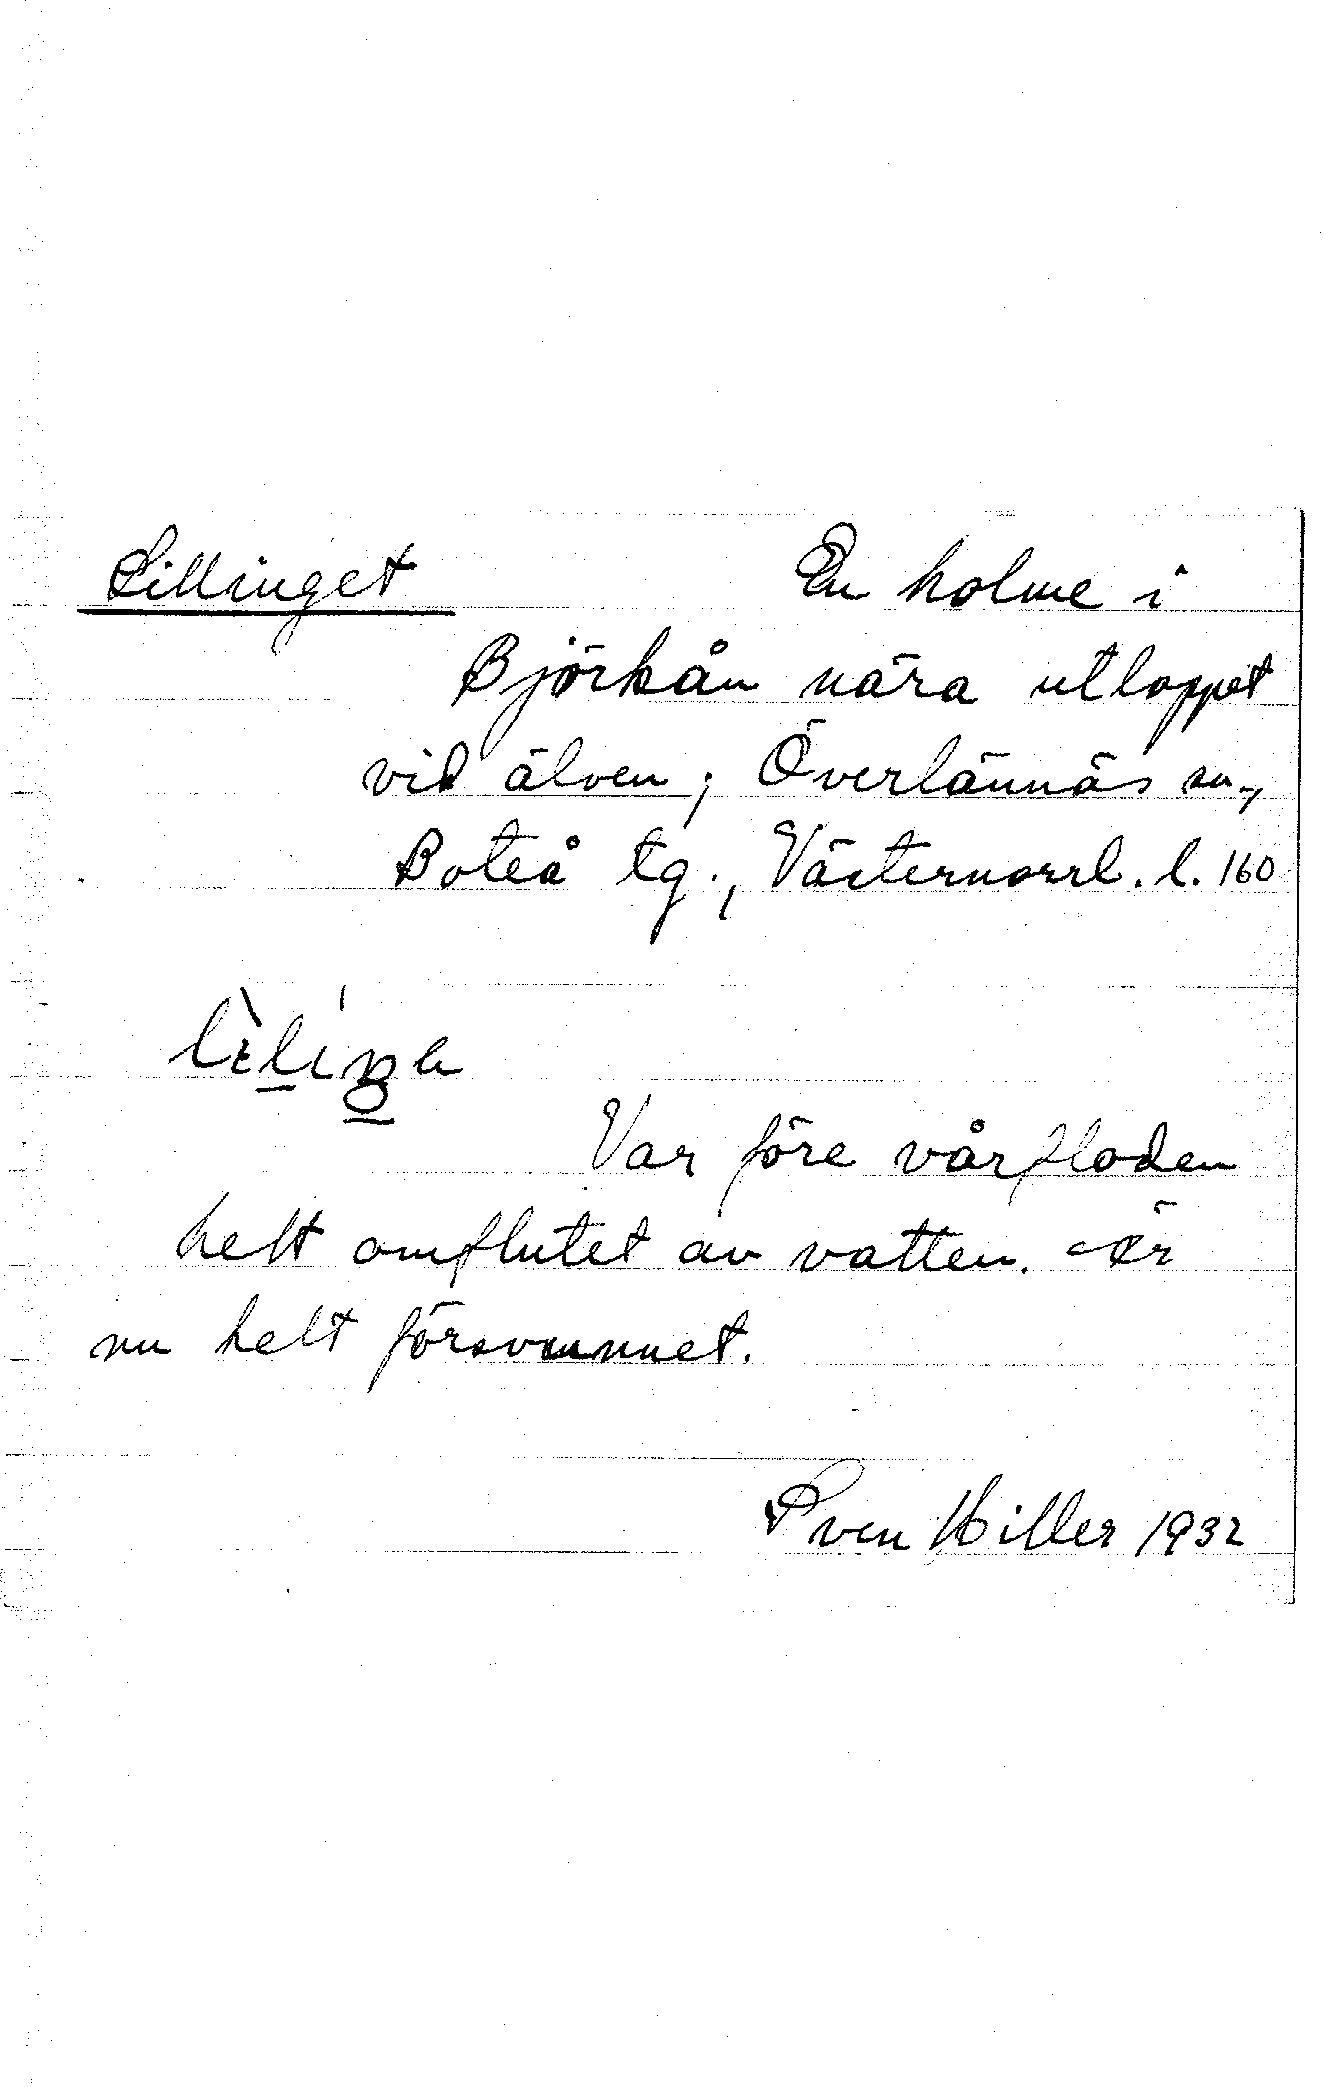 Lillinget En holme i
Björkån nära utloppet
vid älven; Överlännäs sn.,
Boteå tg., Västernorrl. l. 160
Var före vårfloden
helt omflutet av vatten. Är
nu helt försvunnet.
Sven Hiller 1932